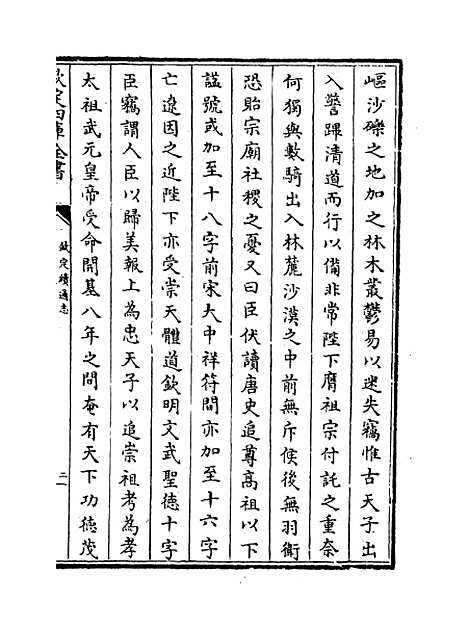 嶇沙礫之地加之林木叢鬱易以迷失竊惟古天子出
入警蹕清道而行以備非常陛下膺祖宗付託之重奈
何獨與數騎出入林麓沙漠之中前無斥候後無羽衛
恐貽宗廟社稷之憂又曰臣伏讀唐史追尊高祖以下
諡號或加至十八字前宋大中祥符間亦加至十六字
亡遼因之近陛下亦受崇天體道欽明文武聖德十字
臣竊謂人臣以歸美報上為忠天子以追崇祖考為孝
太祖武元皇帝受命開基八年之間奄有天下功德茂
欽定四庫全書
欽定續通志
二